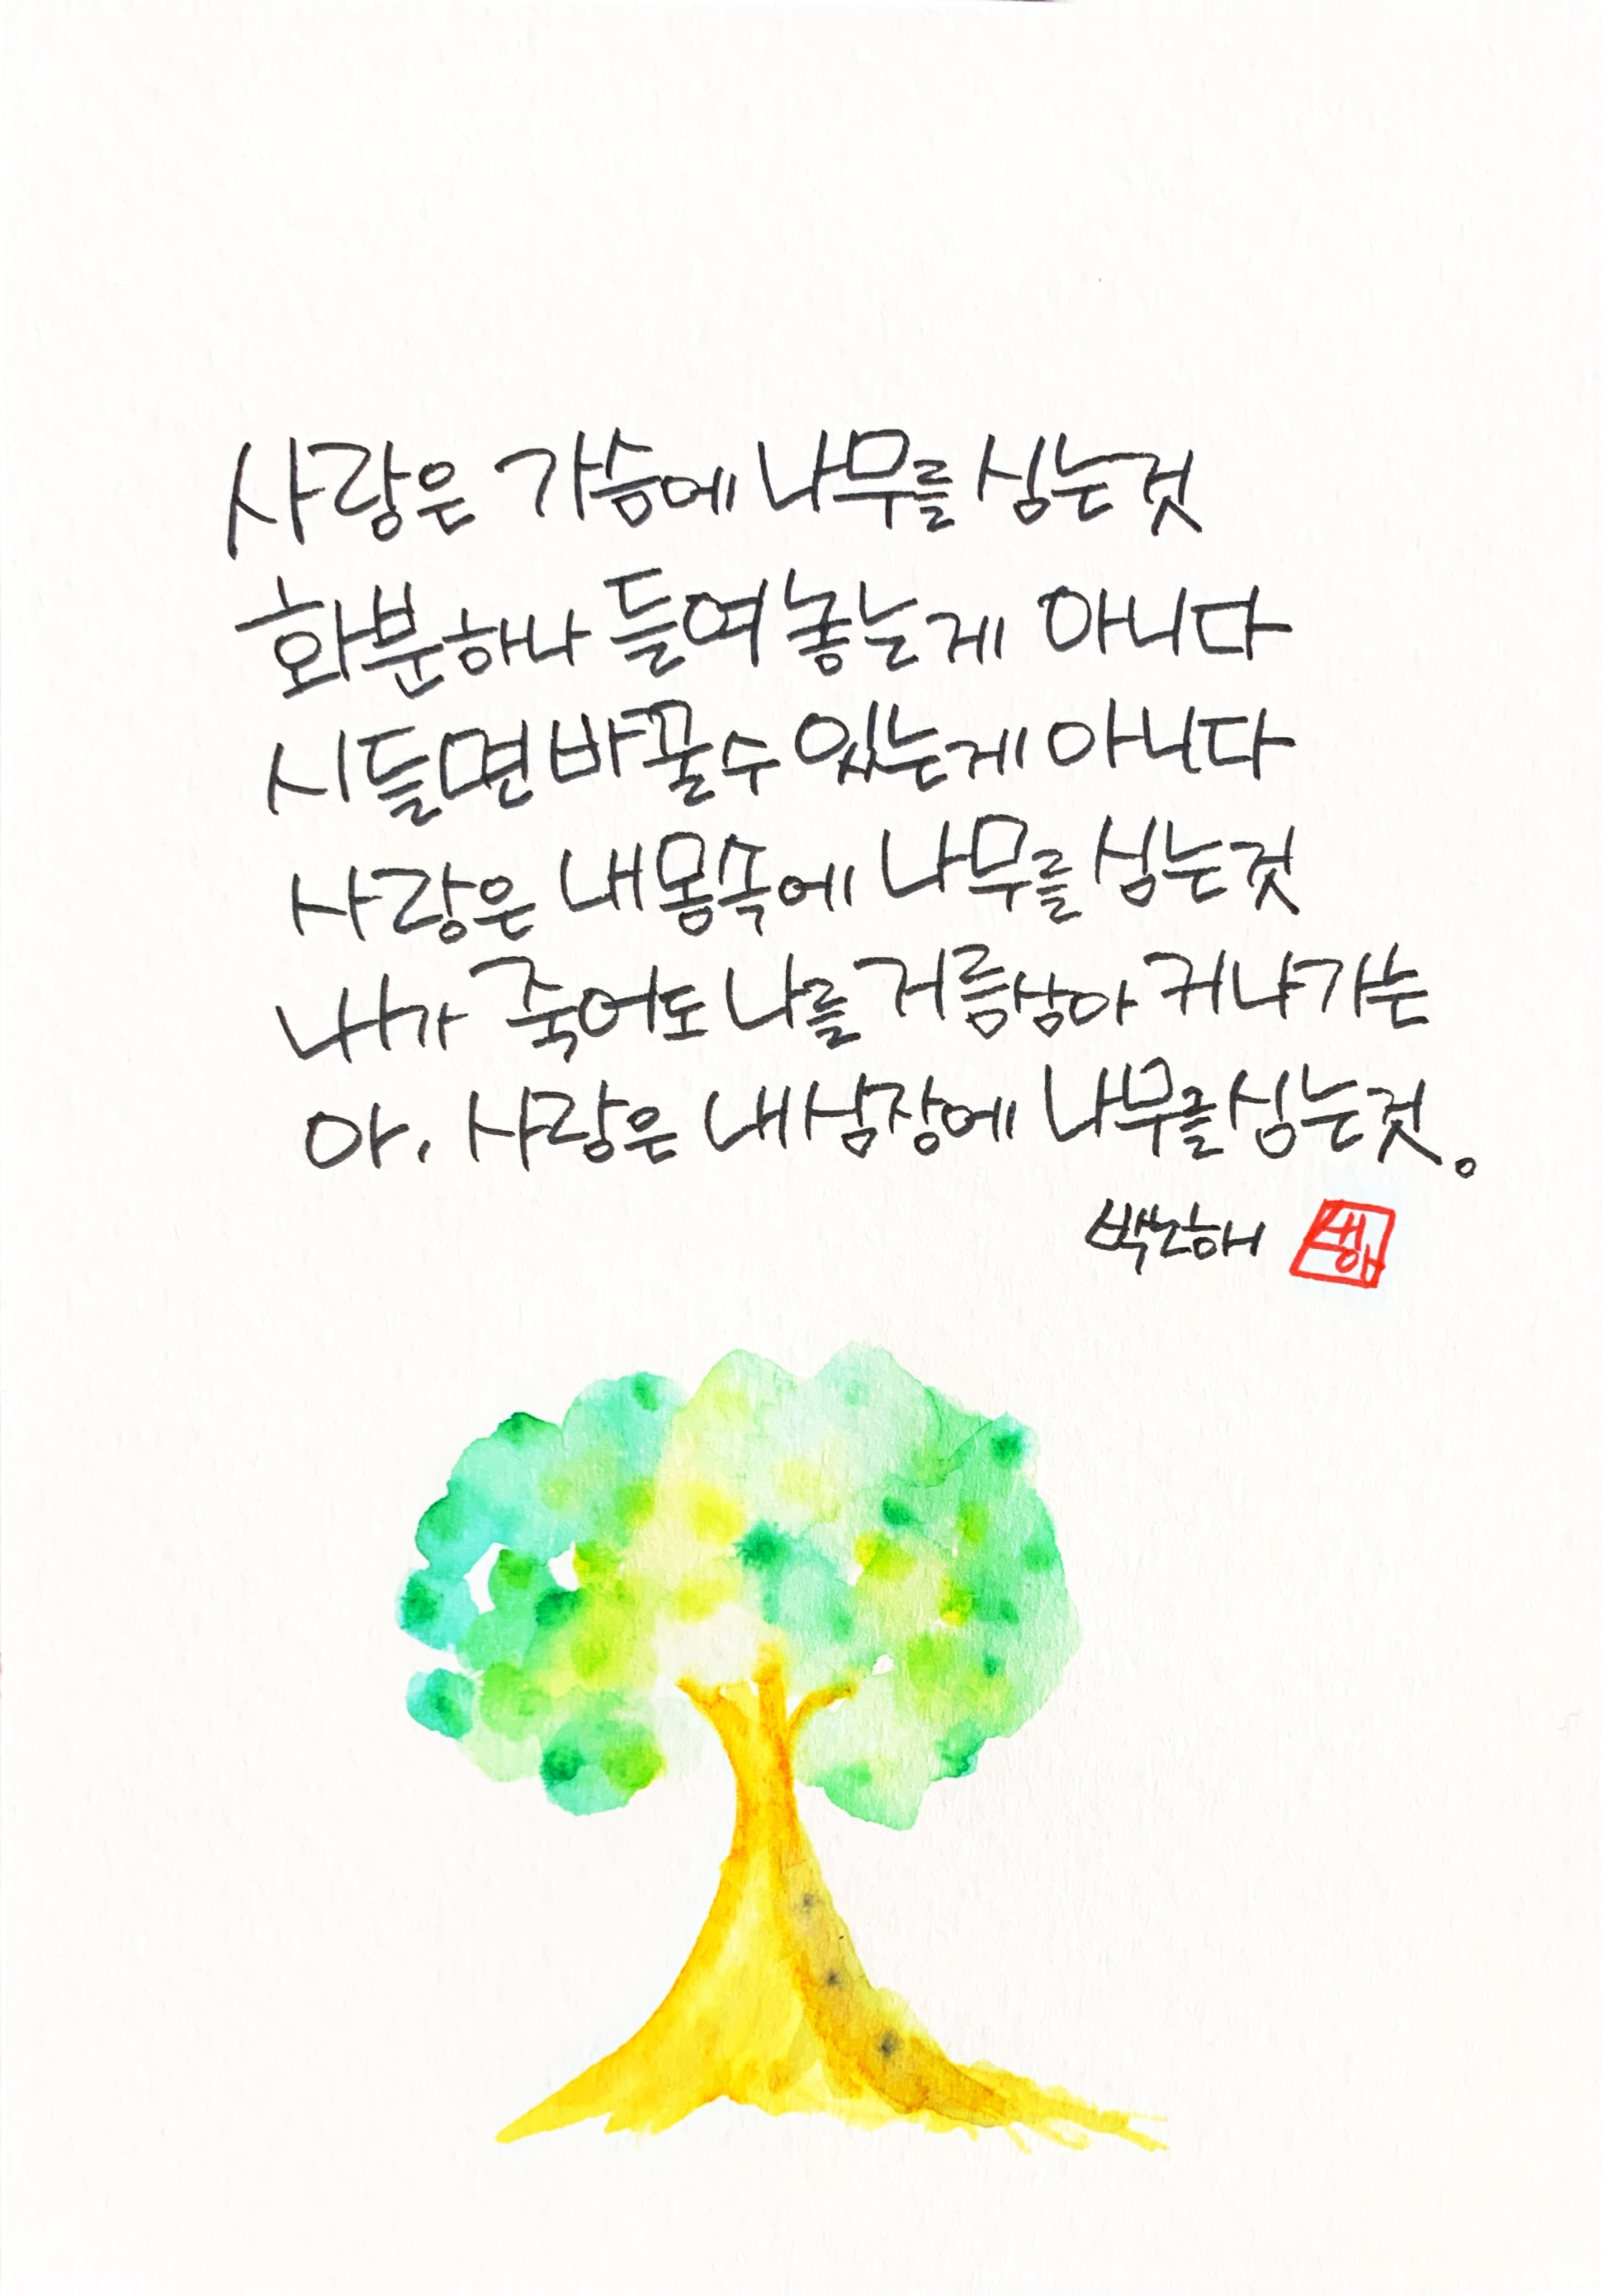 사랑은 가슴에 나무를 심는것
화분하나 들여 놓는게 아니다
시들면 바꿀수 있는게 아니다
사랑은 내몸속에 나무를 심는것
내가 죽어도 나를 거름삼아 커나가는
아. 사랑은 내심장에 나무를 심는것。
박노해